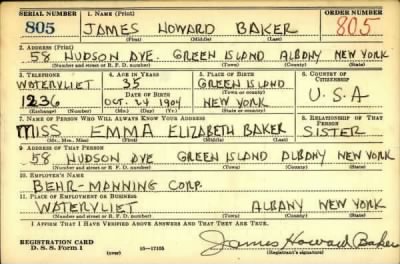 SERIAL NUMBER 1. NAME (Print) ORDER NUMBER
805 JAMES HOWARD BAKER 805
(First) (Middle) (Last)
2. ADDRESS (Print)
58 HUDSON AVE. GREEN ISLAND ALBANY NEW YORK
(Number and street or R. F. D. number) (Town) (County) (State)
3. TELEPHONE 4. AGE IN YEARS 5. PLACE OF BIRTH 6. COUNTRY OF CITIZENSHIP
WATERVLIET 35 GREEN ISLAND
(Town or county)
1236 OCT. 24 1904 NEW YORK U.S.A
(Exchange) (Number) (Mo.) (Day) (Yr.) (State or country)
7. NAME OF PERSON WHO WILL ALWAYS KNOW YOUR ADDRESS 8. RELATIONSHIP OF THAT PERSON
MISS EMMA ELIZABETH BAKER SISTER
(Mr., Mrs., Miss) (First) (Middle) (Last)
9. ADDRESS OF THAT PERSON
58 HUDSON AVE GREEN ISLAND ALBANY NEW YORK
(Number and street or R. F. D. number) (Town) (County) (State)
10. EMPLOYER'S NAME
BEHR-MANNING CORP.
11. PLACE OF EMPLOYMENT OR BUSINESS
WATERVLIET ALBANY NEW YORK
(Number and street or R. F. D. number) (Town) (County) (State)
I AFFIRM THAT I HAVE VERIFIED ABOVE ANSWERS AND THAT THEY ARE TRUE.
REGISTRATION CARD
D. S. S. Form 1 (over) 16—17105 James Howard Baker
(Registrant's signature)